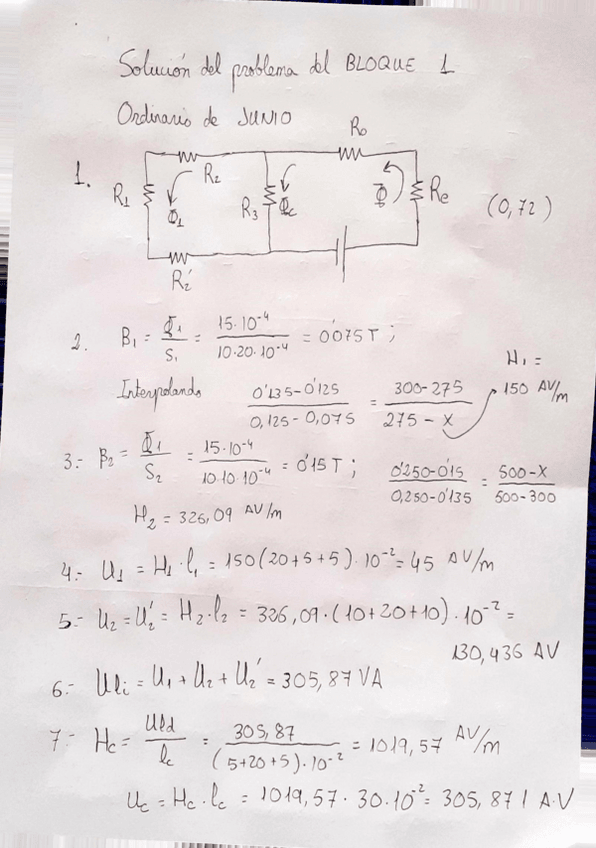 Solución del problema del BLOQUE 1
Ordinario de JUNIO
1.
R₁ R₂ R₀ Φ₁ R₃ Φc Φ Re (0,72)
R₂'
2. B₁ = Φ₁/S₁ = 15·10⁻⁴/10·20·10⁻⁴ = 0'075T ;
H₁ = 150 AV/m
Interpolando 0'135-0'125/0,125-0,075 = 300-275/275-X
3.- B₂ = Φ₁/S₂ = 15·10⁻⁴/10·10·10⁻⁴ = 0'15T ; 0'250-0'15/0,250-0'135 = 500-X/500-300
H₂ = 326,09 AV/m
4.- U₁ = H₁·l₁ = 150(20+5+5)·10⁻² = 45 AV/m
5.- U₂ = U₂' = H₂·l₂ = 326,09·(10+20+10)·10⁻² =
130,436 AV
6.- Uli = U₁ + U₂ + U₂' = 305,87 VA
7- Hc = Uld/lc = 305,87/(5+20+5)·10⁻² = 1019,57 AV/m
Uc = Hc·lc = 1019,57·30·10⁻² = 305,871 A·V